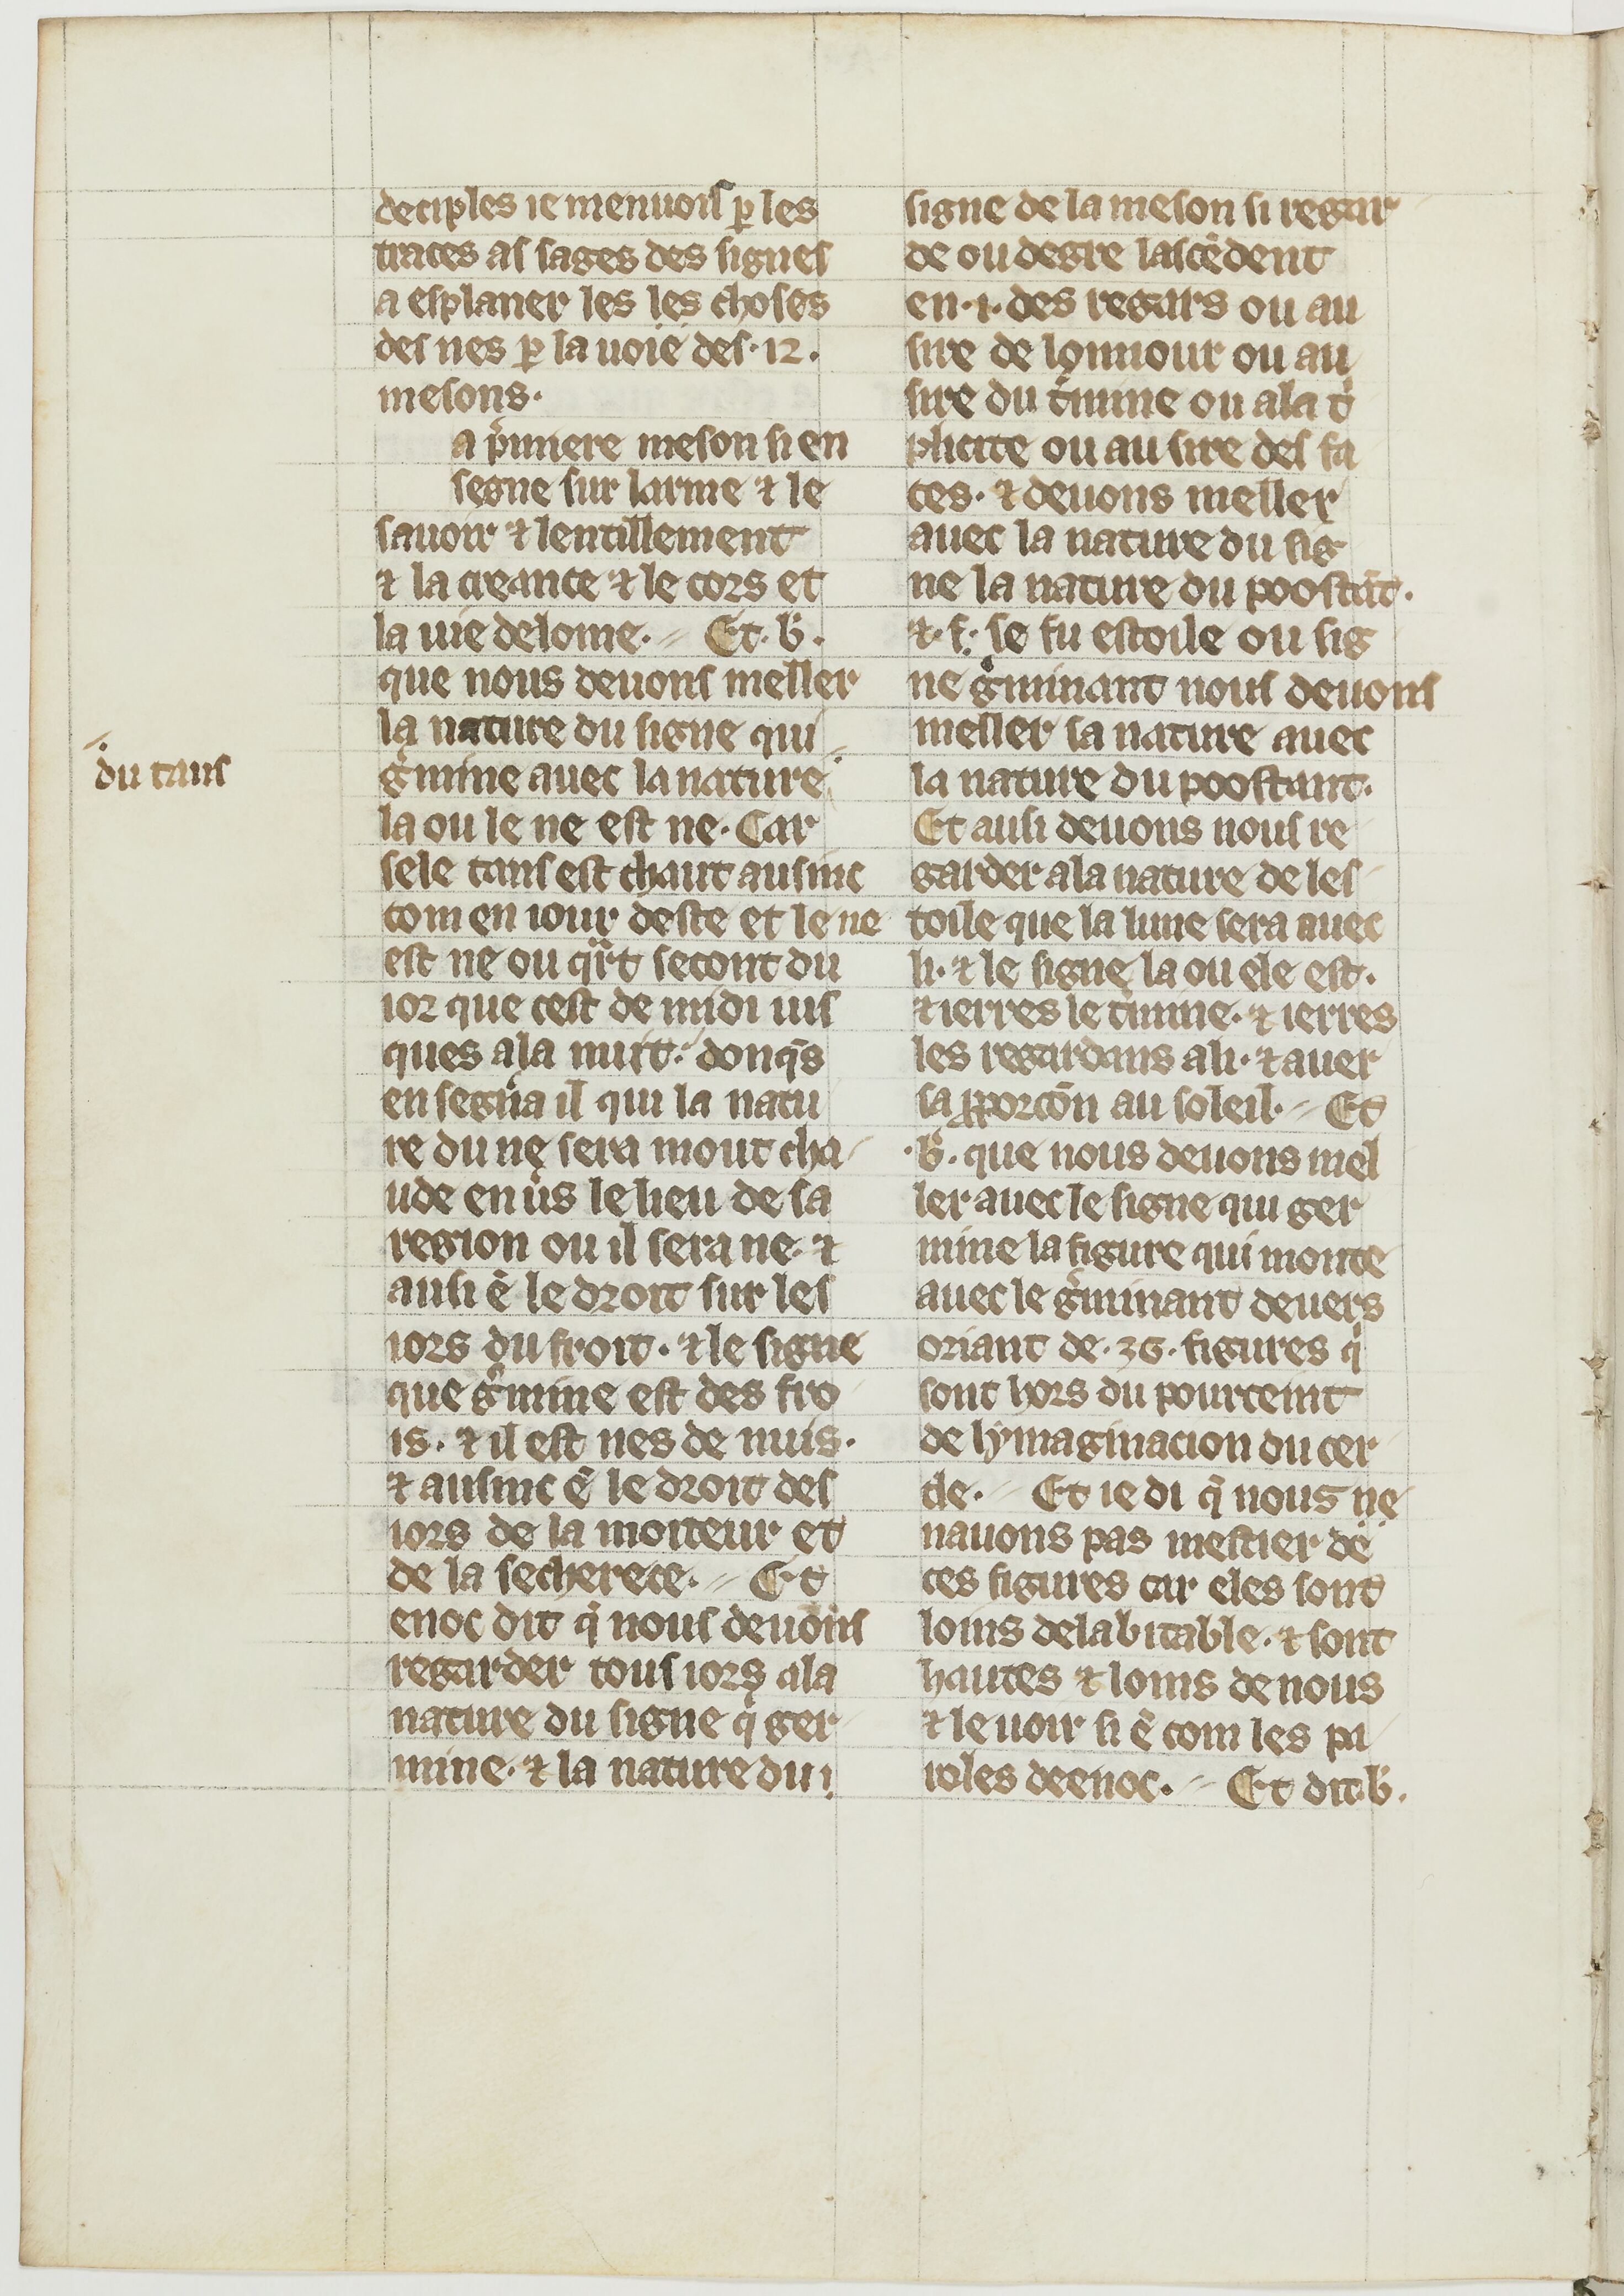 deciples ie menuois ꝑ les
traces as sages des signes
a esplaner les les choses
des nes ꝑ la uoie des·12·
mesons·
a pͥmiere meson si en
segne sur larme ⁊ le
sauoir ⁊ lentillement
⁊ la creance ⁊ le cors et
la uie delome· Et·b̾·
que nous deuons meller
la nature du signe qui
du tans
g̾mine auec la nature
la ou le ne est ne· Car
sele tans est chaut ausinc
com en iour deste et le ne
est ne ou qͣrt secont du
ior que cest de midi ius
ques ala nuit· donq̄s
en segn̾a il qui la natu
re du ne sera mout cha
ude en u̾s le lieu de sa
region ou il sera ne· ⁊
ausi ē le droit sur les
iors du froit· ⁊ le signe
que g̾mine est des fro
is· ⁊ il est nes de nuis·
⁊ ausinc ē le droit des
iors de la moiteur et
de la secherece· Et
enoc dit q̄ nous deuons
regarder tous iors ala
nature du signe qͥ ger
mine· ⁊ la nature du
signe de la meson si regar
de ou degre lascēdent
en·1·des regars ou au
sire de lonnour ou au
sire du t̾mine ou ala tͥ
plicite ou au sire des fa
ces· ⁊ deuons meller
auec la nature du sig
ne la nature du poostāt·
⁊·f· se fu estoile ou sig
ne g̾minant nous deuons
meller sa nature auec
la nature du poostant·
Et ausi deuons nous re
garder ala nature de les
toile que la lune sera auec
li· ⁊ le signe la ou ele est·
⁊ ierres le t̾mine· ⁊ ierres
les regardans ali· ⁊ auer
sa ꝓporcōn au soleil· Et
·b̾· que nous deuons mel
ler auec le signe qui ger
mine la figure qui monte
auec le g̾minant deuers
oriant de·36·figures qͥ
sont hors du pourceint
de lymaginacion du cer
cle· Et ie di q̄ nous ne
nauons pas mestier de
ces figures car eles sont
loins delabitable· ⁊ sont
hautes ⁊ loins de nous
⁊ le uoir si ē com les pa
roles deenoc· Et dit·b̾·